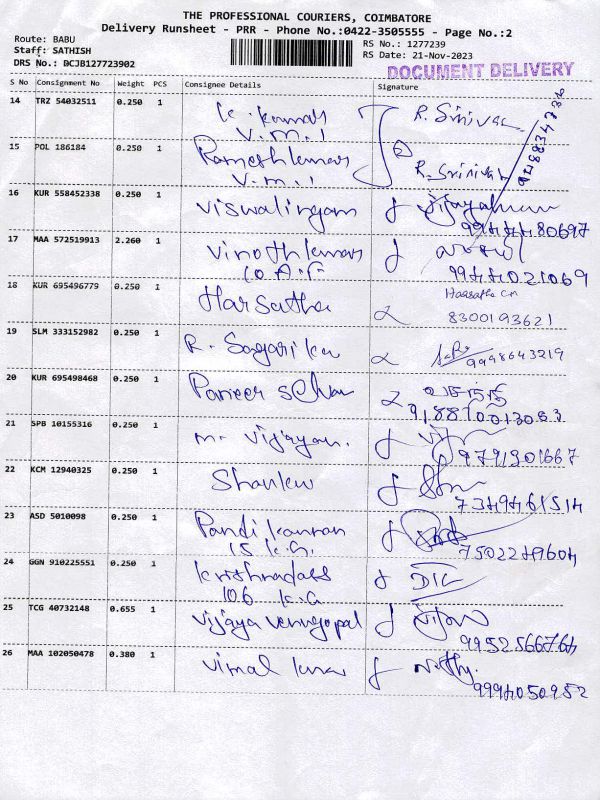 THE PROFESSIONAL COURIERS, COIMBATORE
Delivery Runsheet - PRR - Phone No.:0422-3505555 - Page No.:2
Route: BABU
Staff: SATHISH
DRS No.: BCJB127723902
RS No.: 1277239
RS Date: 21-Nov-2023
DOCUMENT DELIVERY
S No Consignment No Weight PCS Consignee Details Signature
14 TRZ 54032511 0.250 1 K. Kumar R. Sriniva
V.M.I
15 POL 186184 0.250 1 Rameshkumar R. Srinivas
V.M.I
16 KUR 558452338 0.250 1 Viswalingam
9944480697
17 MAA 572519913 2.260 1 Vinothkumar
10 A.F 9944021069
18 KUR 695496779 0.250 1 Harsatha
8300193621
19 SLM 333152982 0.250 1 R. Sagarika 9998643219
20 KUR 695498468 0.250 1 Paneer Selvam
21 SPB 10155316 0.250 1 m. vijayan.
9791301667
22 KCM 12940325 0.250 1 Shanker
7349461514
23 ASD 5010098 0.250 1 Pandikannan
15 K.G. 7502249604
24 GGN 910225551 0.250 1 Krishnadass
106 K.G
25 TCG 40732148 0.655 1 Vijaya Venugopal
9952566764
26 MAA 102050478 0.380 1 Vimal Kumar
9994050952